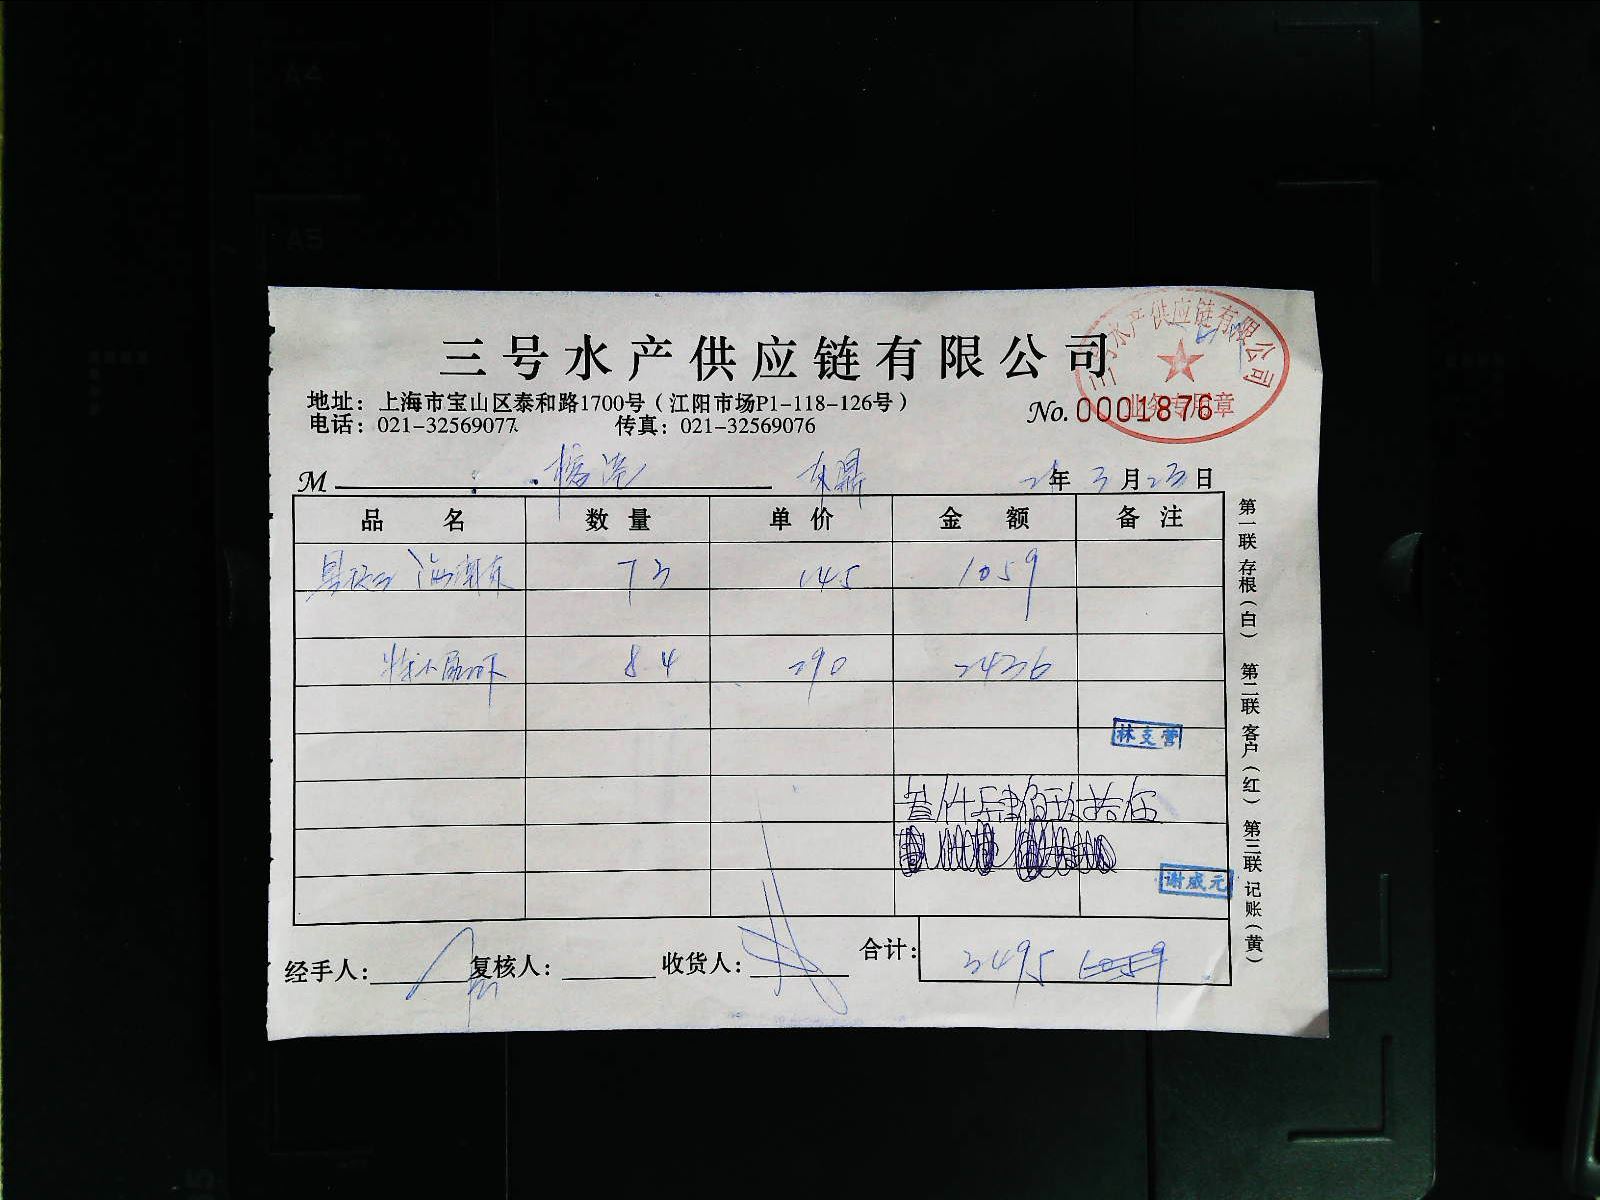 三号水产供应链有限公司
三号水产供应链有限公司
业务专用章
地址：上海市宝山区泰和路1700号（江阳市场P1-118-126号）
No. 0001876
电话：021-32569077
传真：021-32569076
M 东鼎 21年3月23日
品名 数量 单价 金额 备注
73 145 1059
8.4 290 2436
林支营
叁仟肆佰玖拾伍
谢咸元
经手人： 复核人： 收货人： 合计： 3495 1059
第一联 存根（白） 第二联 客户（红） 第三联 记账（黄）
A4
A5